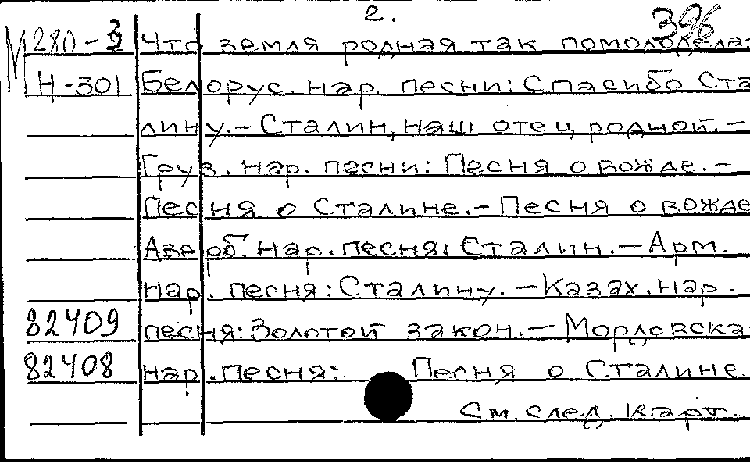 2.
396
М280-3 Что земля родная так помолодела
Н-301 Белорус. нар. песни: Спасибо Ста
лину.- Сталин, наш отец родной.-
Груз. нар. песни: Песня о вожде.-
Песня о Сталине.- Песня о вожде
Азерб. нар. песня: Сталин.- Арм.
нар. песня: Сталину.- Казах. нар.
82409 песня: Золотой закон.- Мордовска
82408 нар. песня: Песня о Сталине.
См. след. карт.